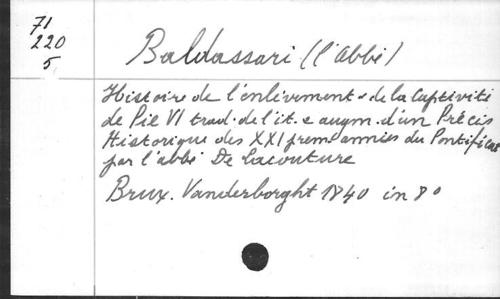 71
220
5
Baldassari (l'abbé)
Histoire de l'enlèvement & de la Captivité
de Pie VI trad. de l'it. & augm. d'un Précis
Historique des XXI prem. années du Pontificat
par l'abbé De Lacouture
Brux. Vanderborght 1840 in 8°